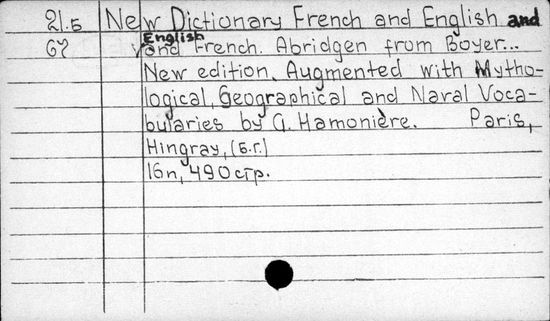 21.5 New Dictionary French and English and
67 English and French. Abridgen from Boyer...
New edition. Augmented with Mytho-
logical, Geographical and Naval Voca-
bularies by G. Hamonière. Paris,
Hingray, (б.г.)
16п, 490 стр.